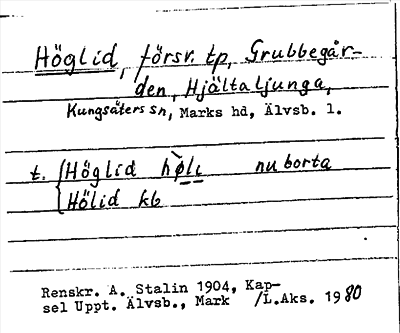 Höglid, försv. tp, Grubbegår-
den, Hjältaljunga,
Kungsäters sn, Marks hd, Älvsb. l.
t. Höglid hø̀li nu borta
Hölid kb
Renskr. A. Stalin 1904, Kap-
sel Uppt. Älvsb., Mark /L.Aks. 1980